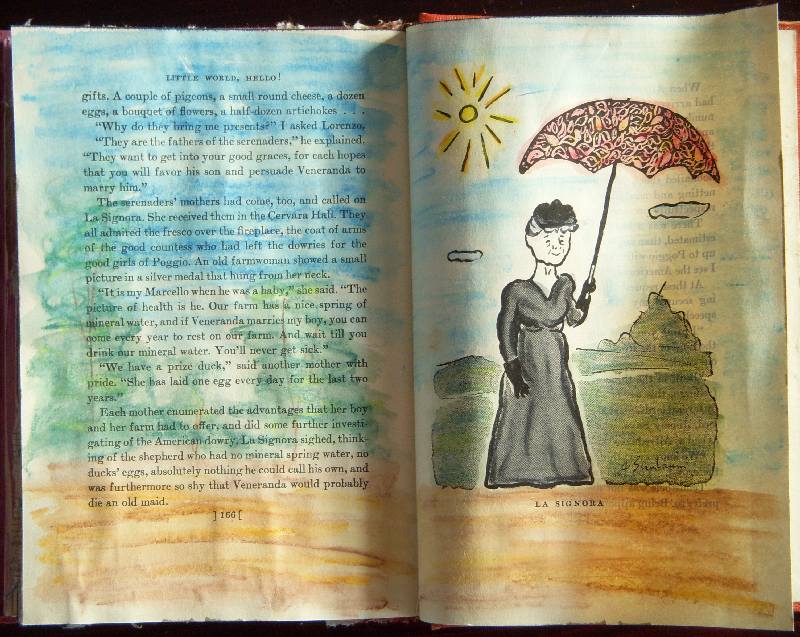 LITTLE WORLD, HELLO!
gifts. A couple of pigeons, a small round cheese, a dozen
eggs, a bouquet of flowers, a half-dozen artichokes . . .
"Why do they bring me presents?" I asked Lorenzo.
"They are the fathers of the serenaders," he explained.
"They want to get into your good graces, for each hopes
that you will favor his son and persuade Veneranda to
marry him."
The serenaders' mothers had come, too, and called on
La Signora. She received them in the Cervara Hall. They
all admired the fresco over the fireplace, the coat of arms
of the good countess who had left the dowries for the
good girls of Poggio. An old farmwoman showed a small
picture in a silver medal that hung from her neck.
"It is my Marcello when he was a baby," she said. "The
picture of health is he. Our farm has a nice spring of
mineral water, and if Veneranda marries my boy, you can
come every year to rest on our farm. And wait till you
drink our mineral water. You'll never get sick."
"We have a prize duck," said another mother with
pride. "She has laid one egg every day for the last two
years."
Each mother enumerated the advantages that her boy
and her farm had to offer, and did some further investi-
gating of the American dowry. La Signora sighed, think-
ing of the shepherd who had no mineral spring water, no
ducks' eggs, absolutely nothing he could call his own, and
was furthermore so shy that Veneranda would probably
die an old maid.
] 166 [
LA SIGNORA